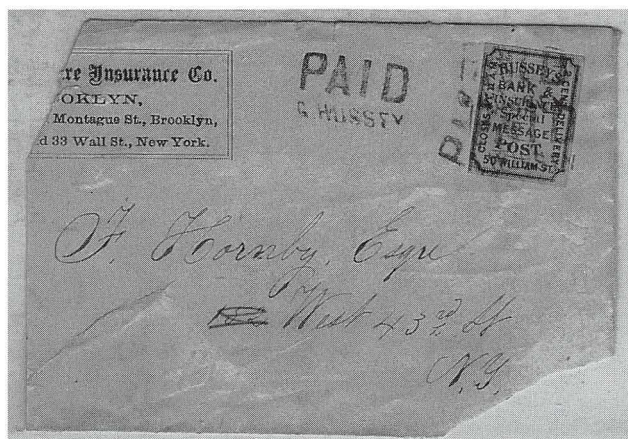 re Insurance Co.
OKLYN,
Montague St., Brooklyn,
d 33 Wall St., New York.
PAID
G HUSSEY
PAID
HUSSEY'S
BANK &
INSURANCE
Special
MESSAGE
POST
50 WILLIAM ST.
DELIVERY
F. Hornby, Esqre
West 43rd St
N.Y.